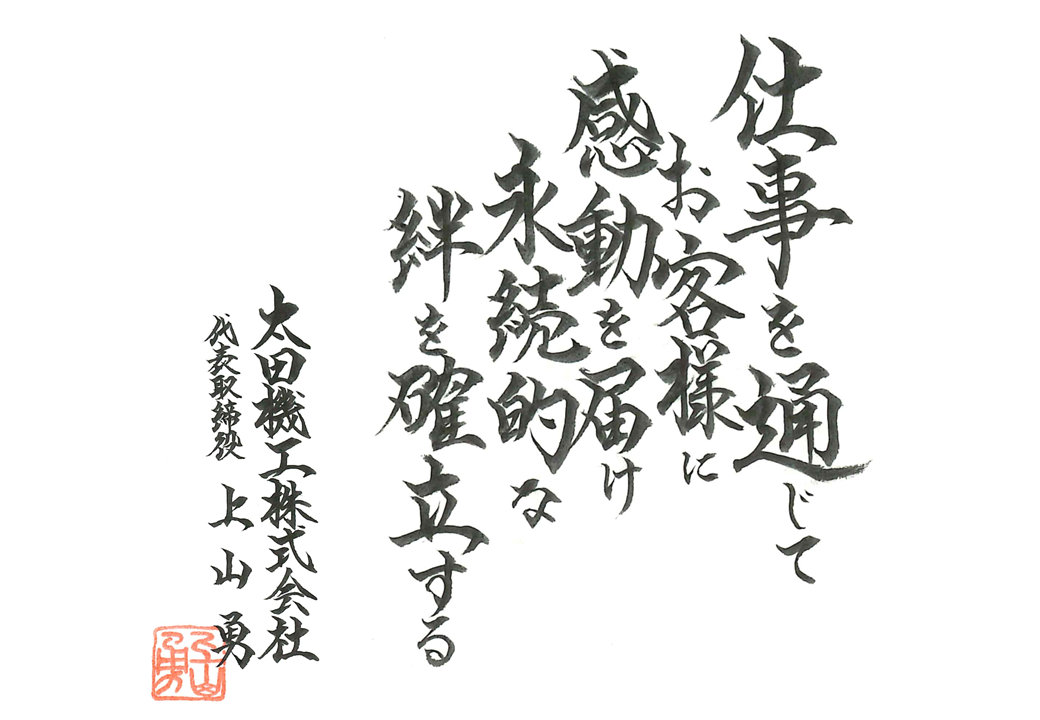 仕事を通じて
お客様に
感動を届け
永続的な
絆を確立する
太田機工株式会社
代表取締役 上山勇